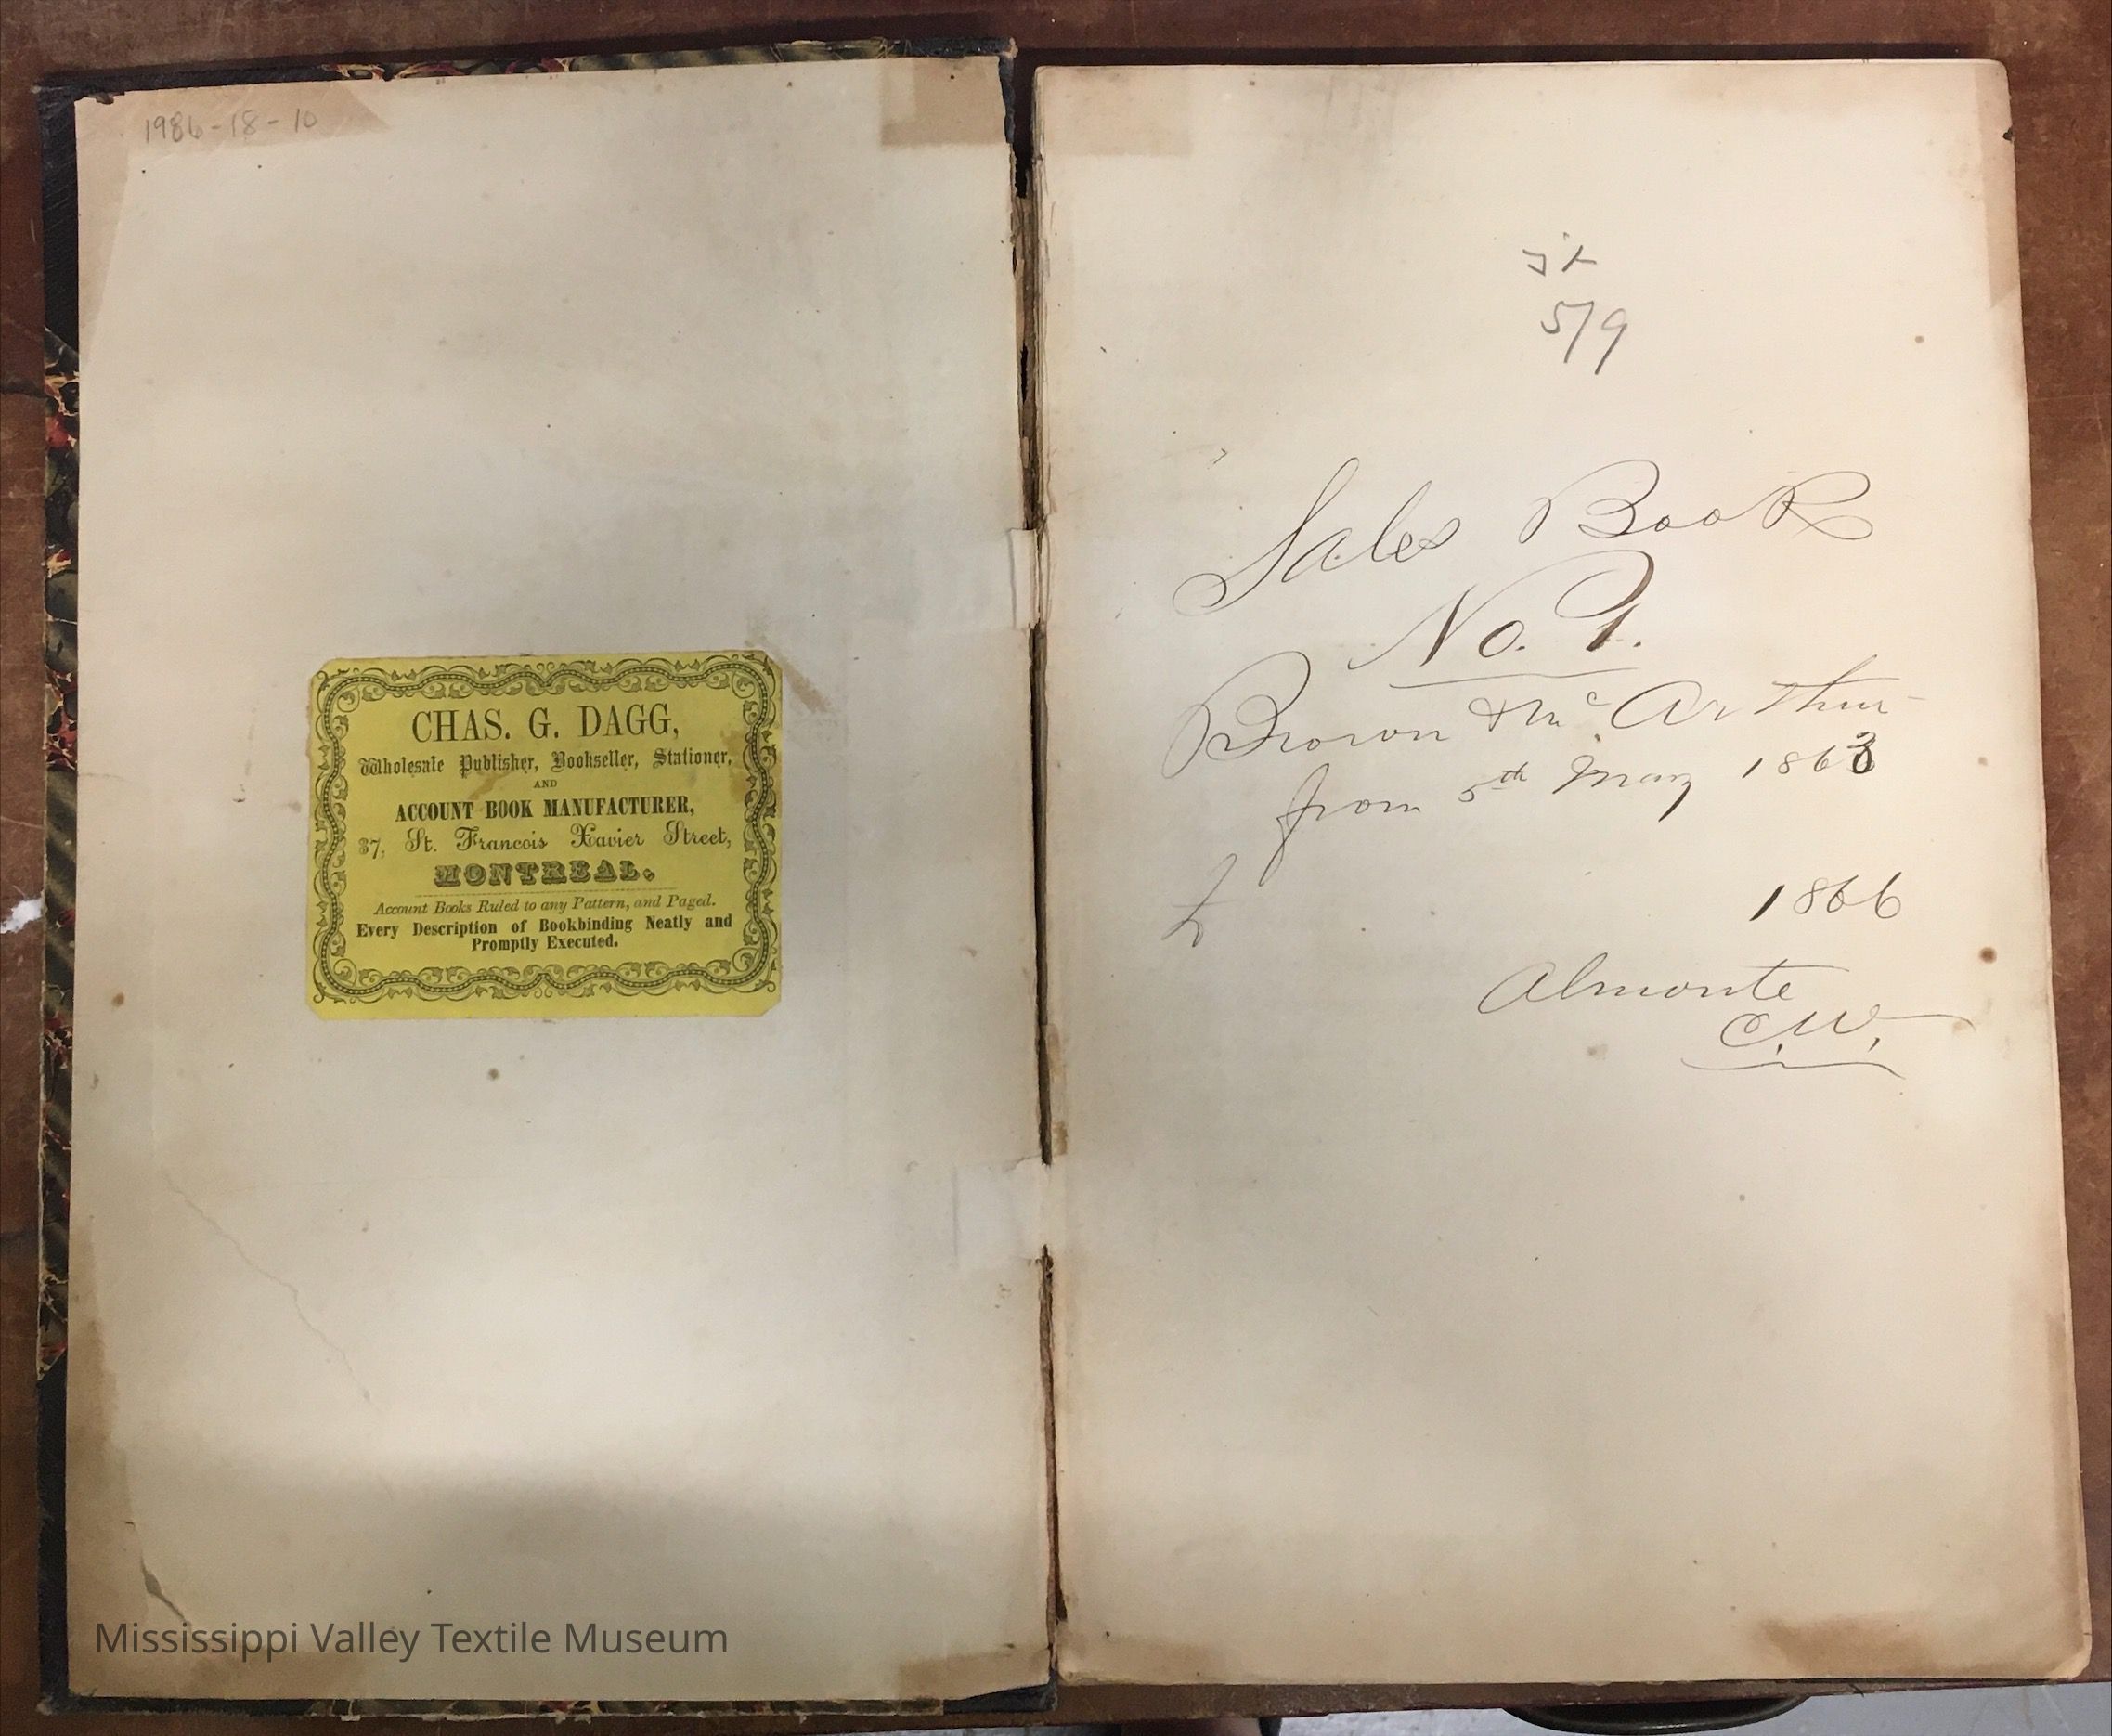 1986-18-10
CHAS. G. DAGG,
Wholesale Publisher, Bookseller, Stationer,
AND
ACCOUNT BOOK MANUFACTURER,
37, St. Francois Xavier Street,
MONTREAL.
Account Books Ruled to any Pattern, and Paged.
Every Description of Bookbinding Neatly and
Promptly Executed.
Mississippi Valley Textile Museum
5/9
Sales Book
No. 1.
Brown & Mc Arthur
from 5th May 1863
1866
Almonte
C.W.